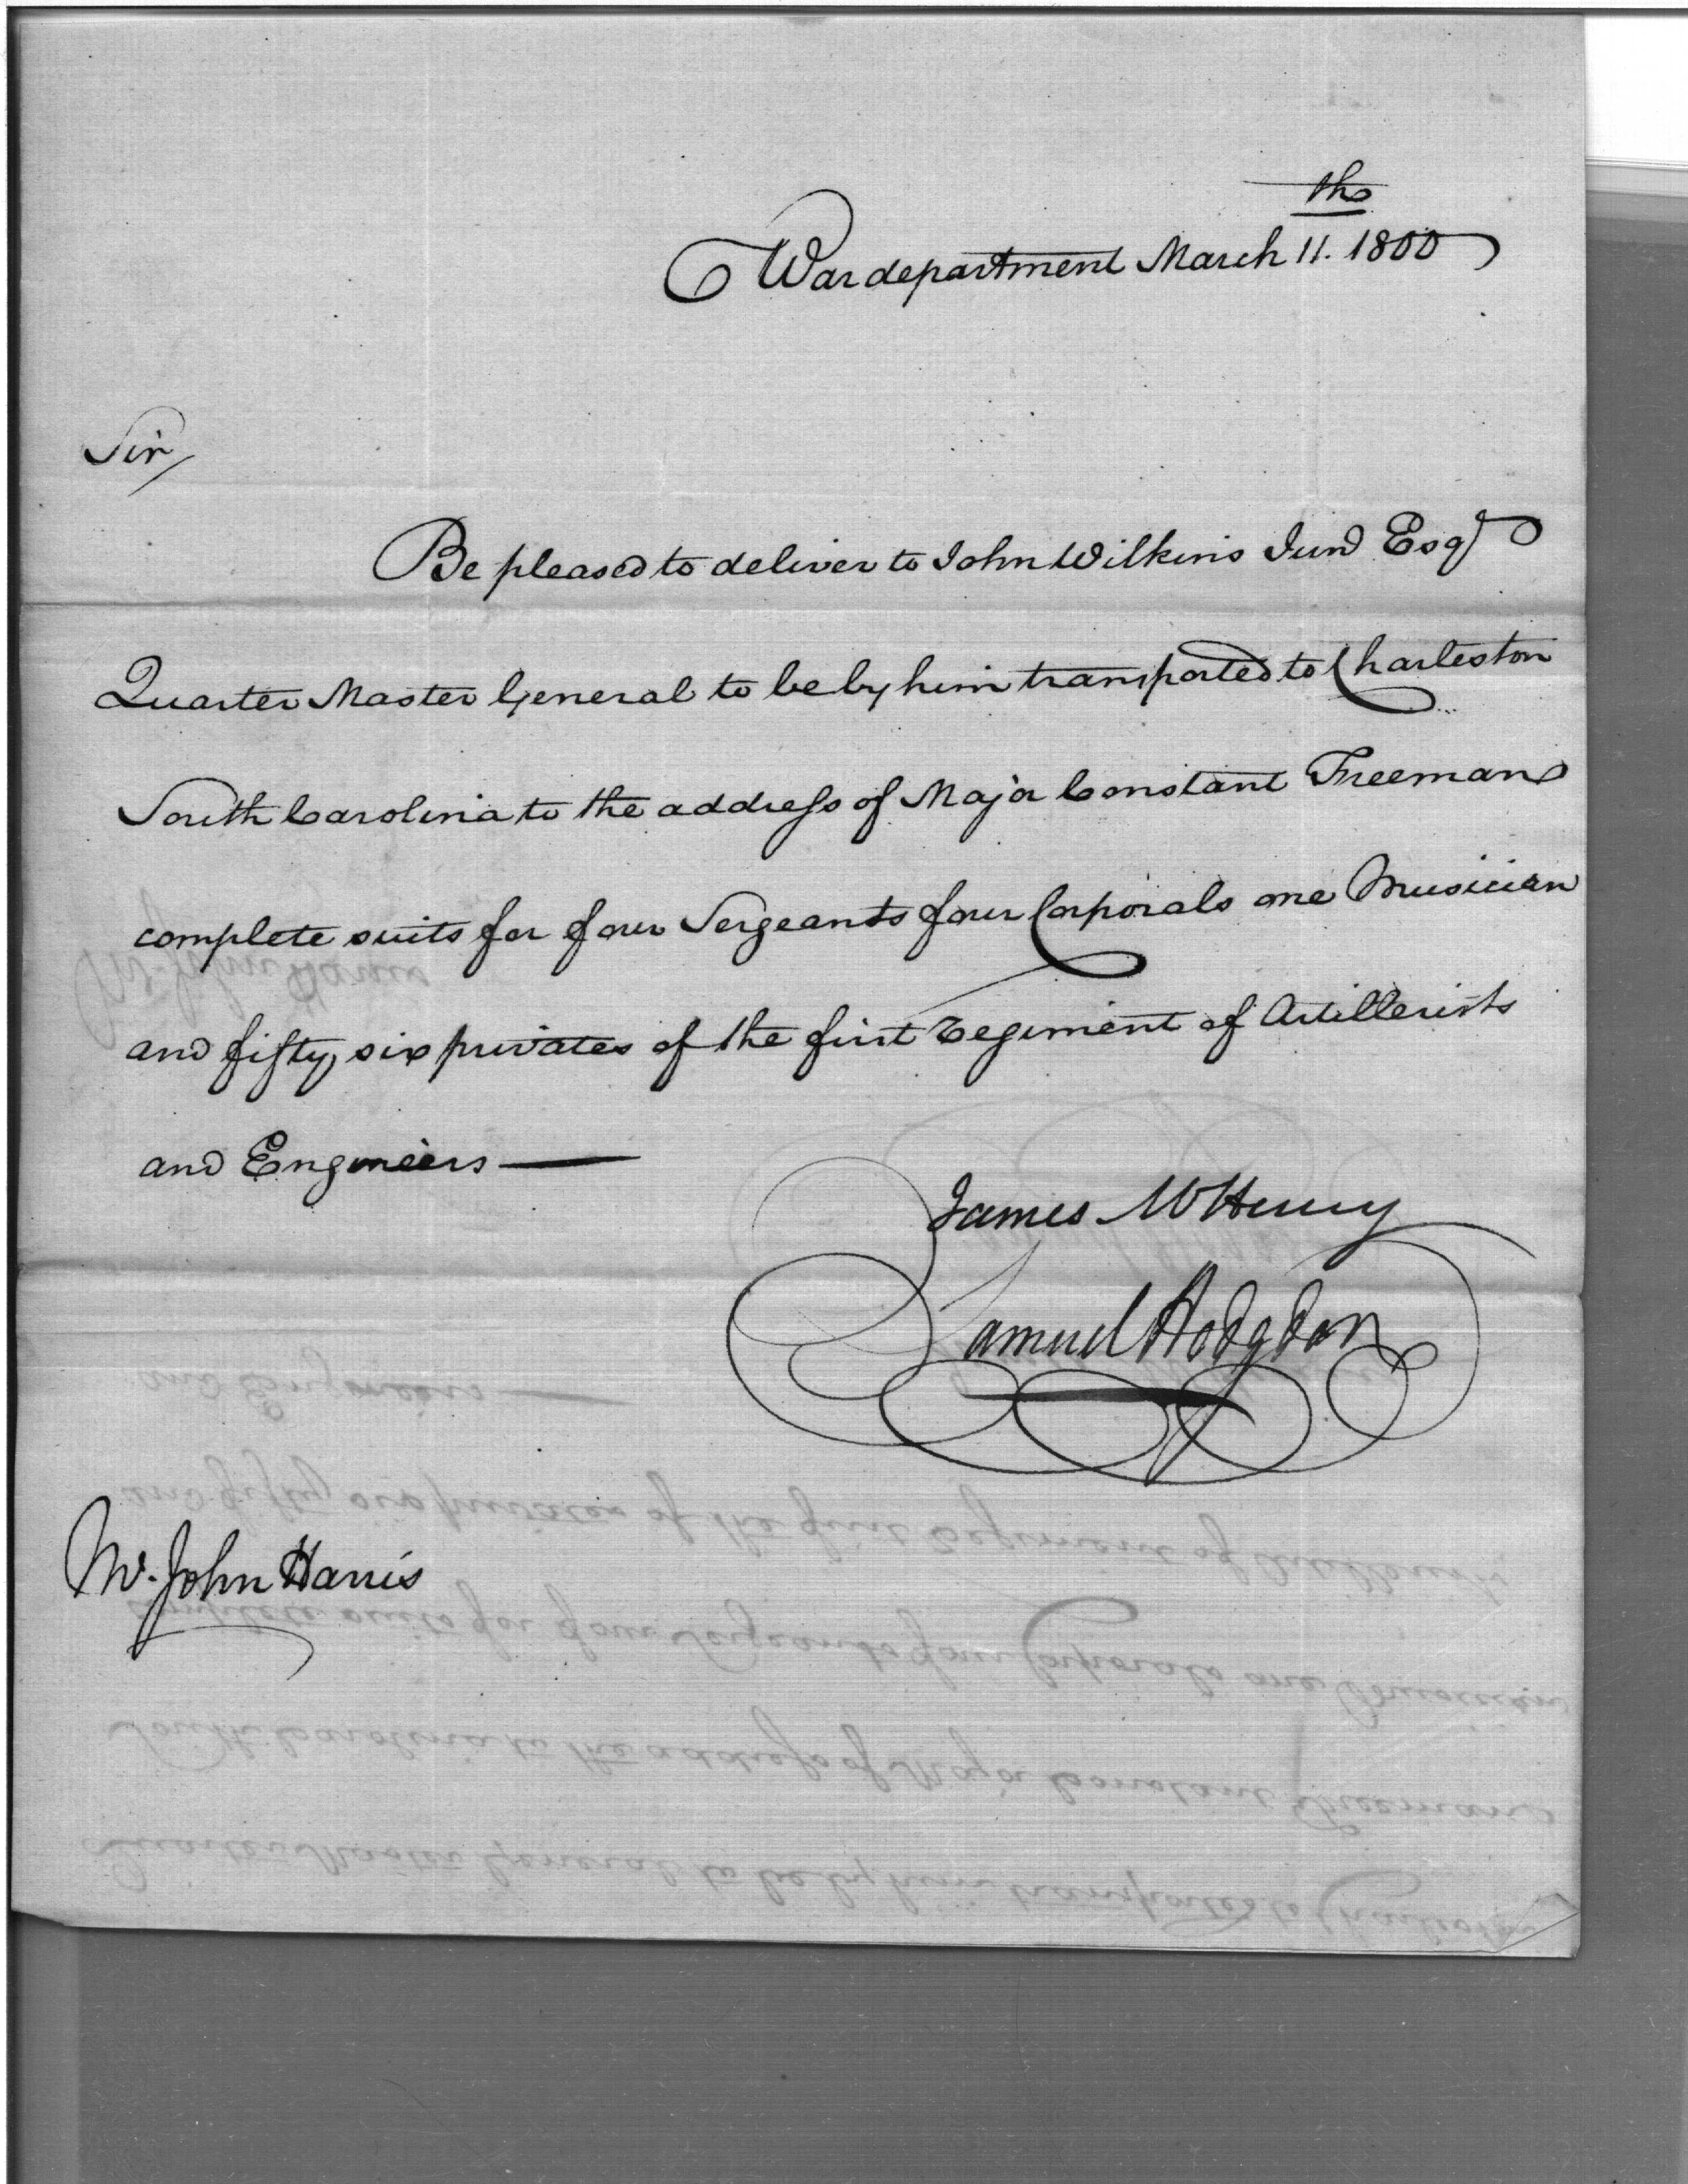 War department March 11.th 1800
Sir,
Be pleased to deliver to John Wilkins Junr Esqr
Quarter Master General to be by him transported to Charleston
South Carolina to the address of Major Constant Freeman
complete suits for four Sergeants four Corporals one Musician
and fifty six privates of the first regiment of Artillerists
and Engineers —
James McHenry
Samuel Hodgdon
Mr. John Harris